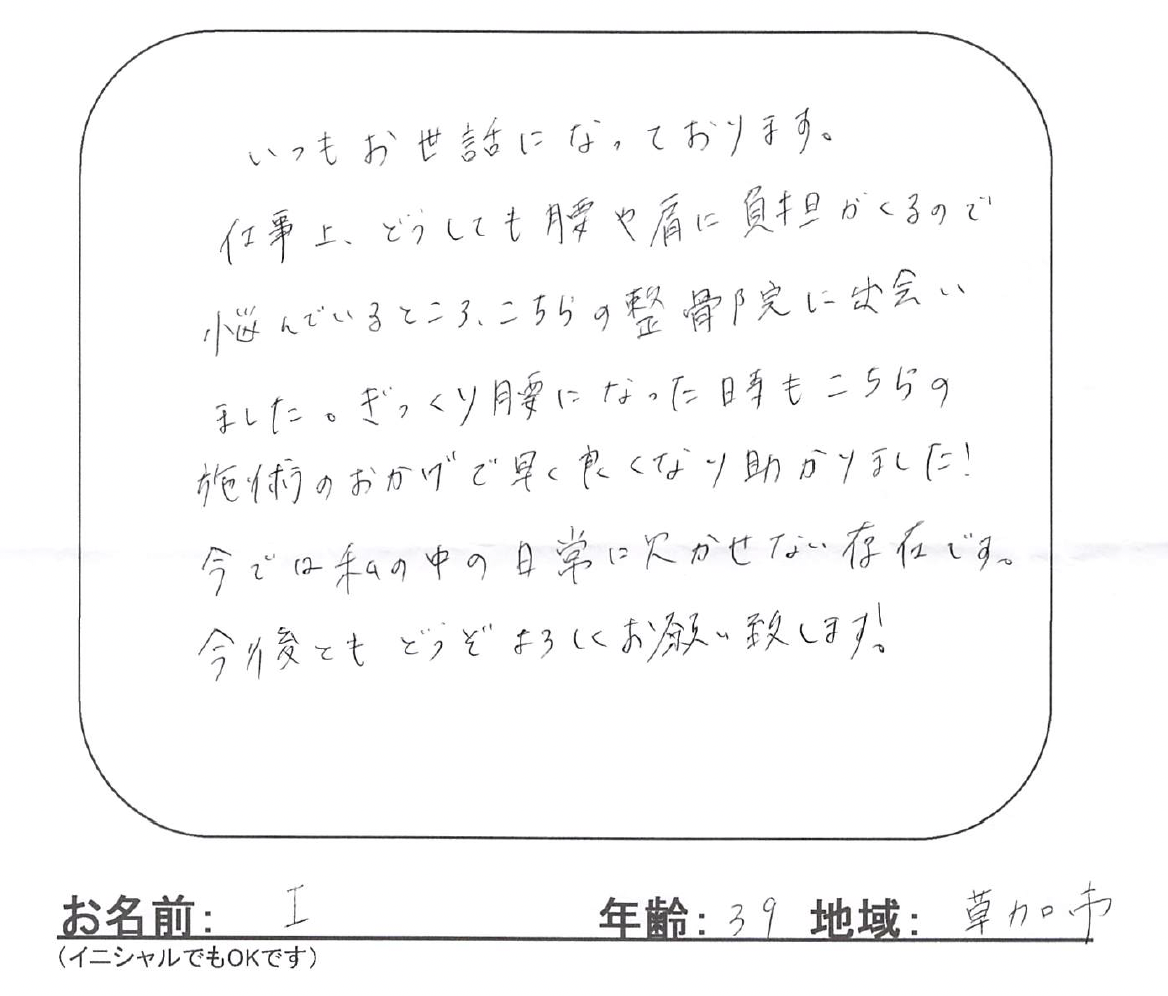 いつもお世話になっております。
仕事上、どうしても腰や肩に負担がくるので
悩んでいるところ、こちらの整骨院に出会い
ました。ぎっくり腰になった時もこちらの
施術のおかげで早く良くなり助かりました!
今では私の中の日常に欠かせない存在です。
今後ともどうぞよろしくお願い致します!
お名前: I 年齢: 39 地域: 草加市
(イニシャルでもOKです)